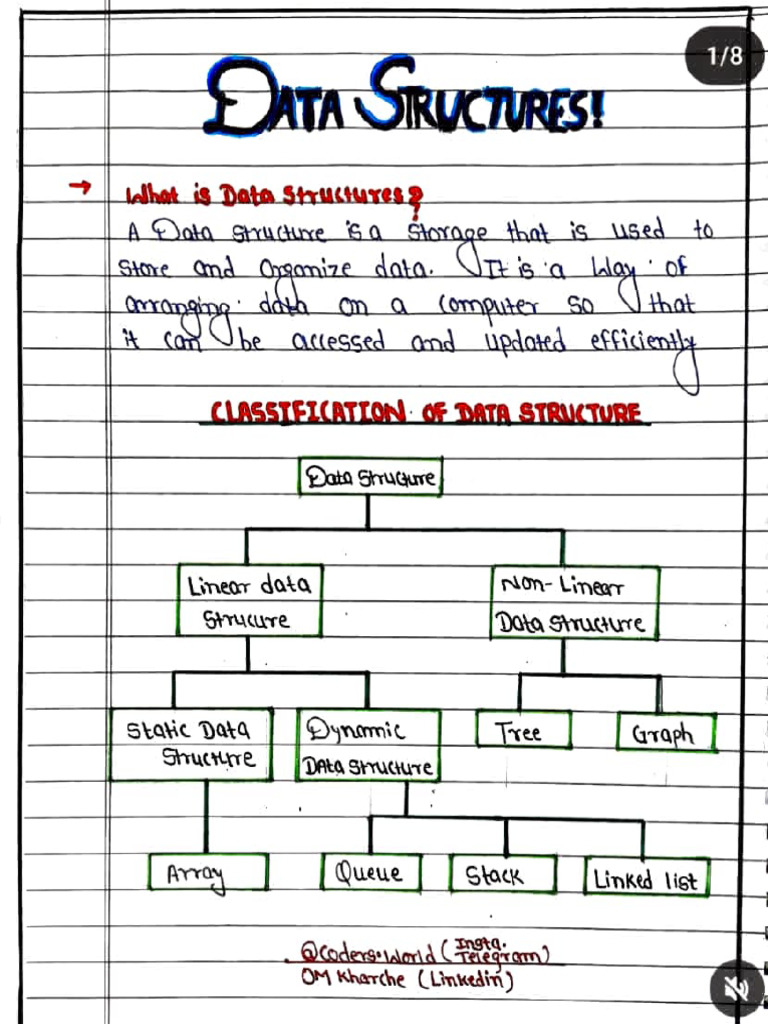 1/8
DATA STRUCTURES!
→ What is Data Structures?
A Data structure is a storage that is used to
store and organize data. It is a way of
arranging data on a computer so that
it can be accessed and updated efficiently
CLASSIFICATION OF DATA STRUCTURE
Data Structure
Linear data Non-Linear
Strucure Data Structure
Static Data Dynamic Tree Graph
Structure Data Structure
Array Queue Stack Linked list
@Coders.World (Insta.
Telegram)
OM Kharche (Linkedin)